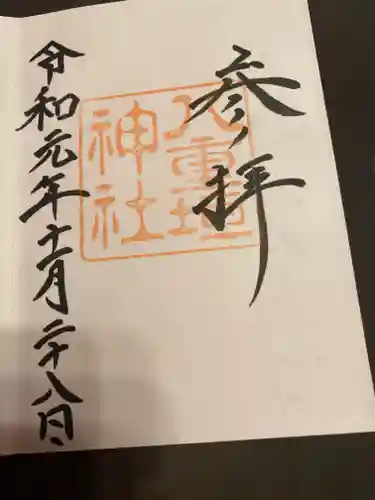 参拝
八重垣
神社
令和元年十一月二十八日